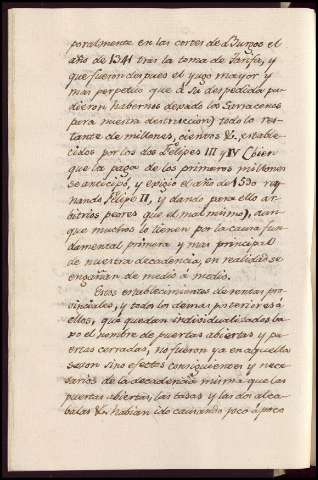 poralmente en las cortes de Burgos el
año de 1341 tras la toma de Tarifa, y
que fueron despues el yugo mayor y
mas perpetuo que á su despedida pu-
dieron habernos dexado los Sarracenos
para nuestra destruccion) todo lo res-
tante de millones, cientos &c. estable-
cidos por los dos Felipes III y IV (bien
que la paga de los primeros millones
se anticipó, y exigió el año de 1590 rey-
nando Felipe II, y dando para ello ar-
bitrios peores que el mal mismo), aun
que muchos lo tienen por la causa fun-
damental primera y mas principal
de nuestra decadencia, en realidad se
engañan de medio á medio.
Estos establecimientos de rentas pro-
vinciales, y todo los demas posteriores á
ellos, que quedan individualizados ba-
xo el nombre de puertas abiertas y pu-
ertas cerradas, no fueron ya en aquella
sazon sino efectos consiguientes y nece-
sarios de la decadencia misma que las
puertas abiertas, las tasas y las dos alca-
balas &c. habian ido causando poco á poco